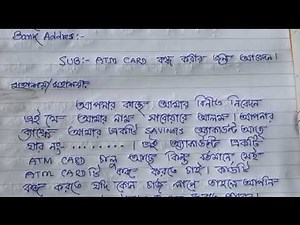 Bank Address:-
SUB:- ATM CARD বন্ধ করার জন্য আবেদন।
মহাশয়/মহাশয়া,
আপনার কাছে আমার বিনীত নিবেদন
এই যে, আমার নাম সারোয়ার আলম। আপনার
ব্যাংকে আমার একটি SAVINGS অ্যাকাউন্ট আছে
যার নং- ......... । এই অ্যাকাউন্টে একটি
ATM CARD চালু আছে কিন্তু বর্তমানে সেই
ATM CARD টি বন্ধ করতে চাই। কার্ডটি
বন্ধ করতে যদি কোন চার্জ লাগে তাহলে আপনি